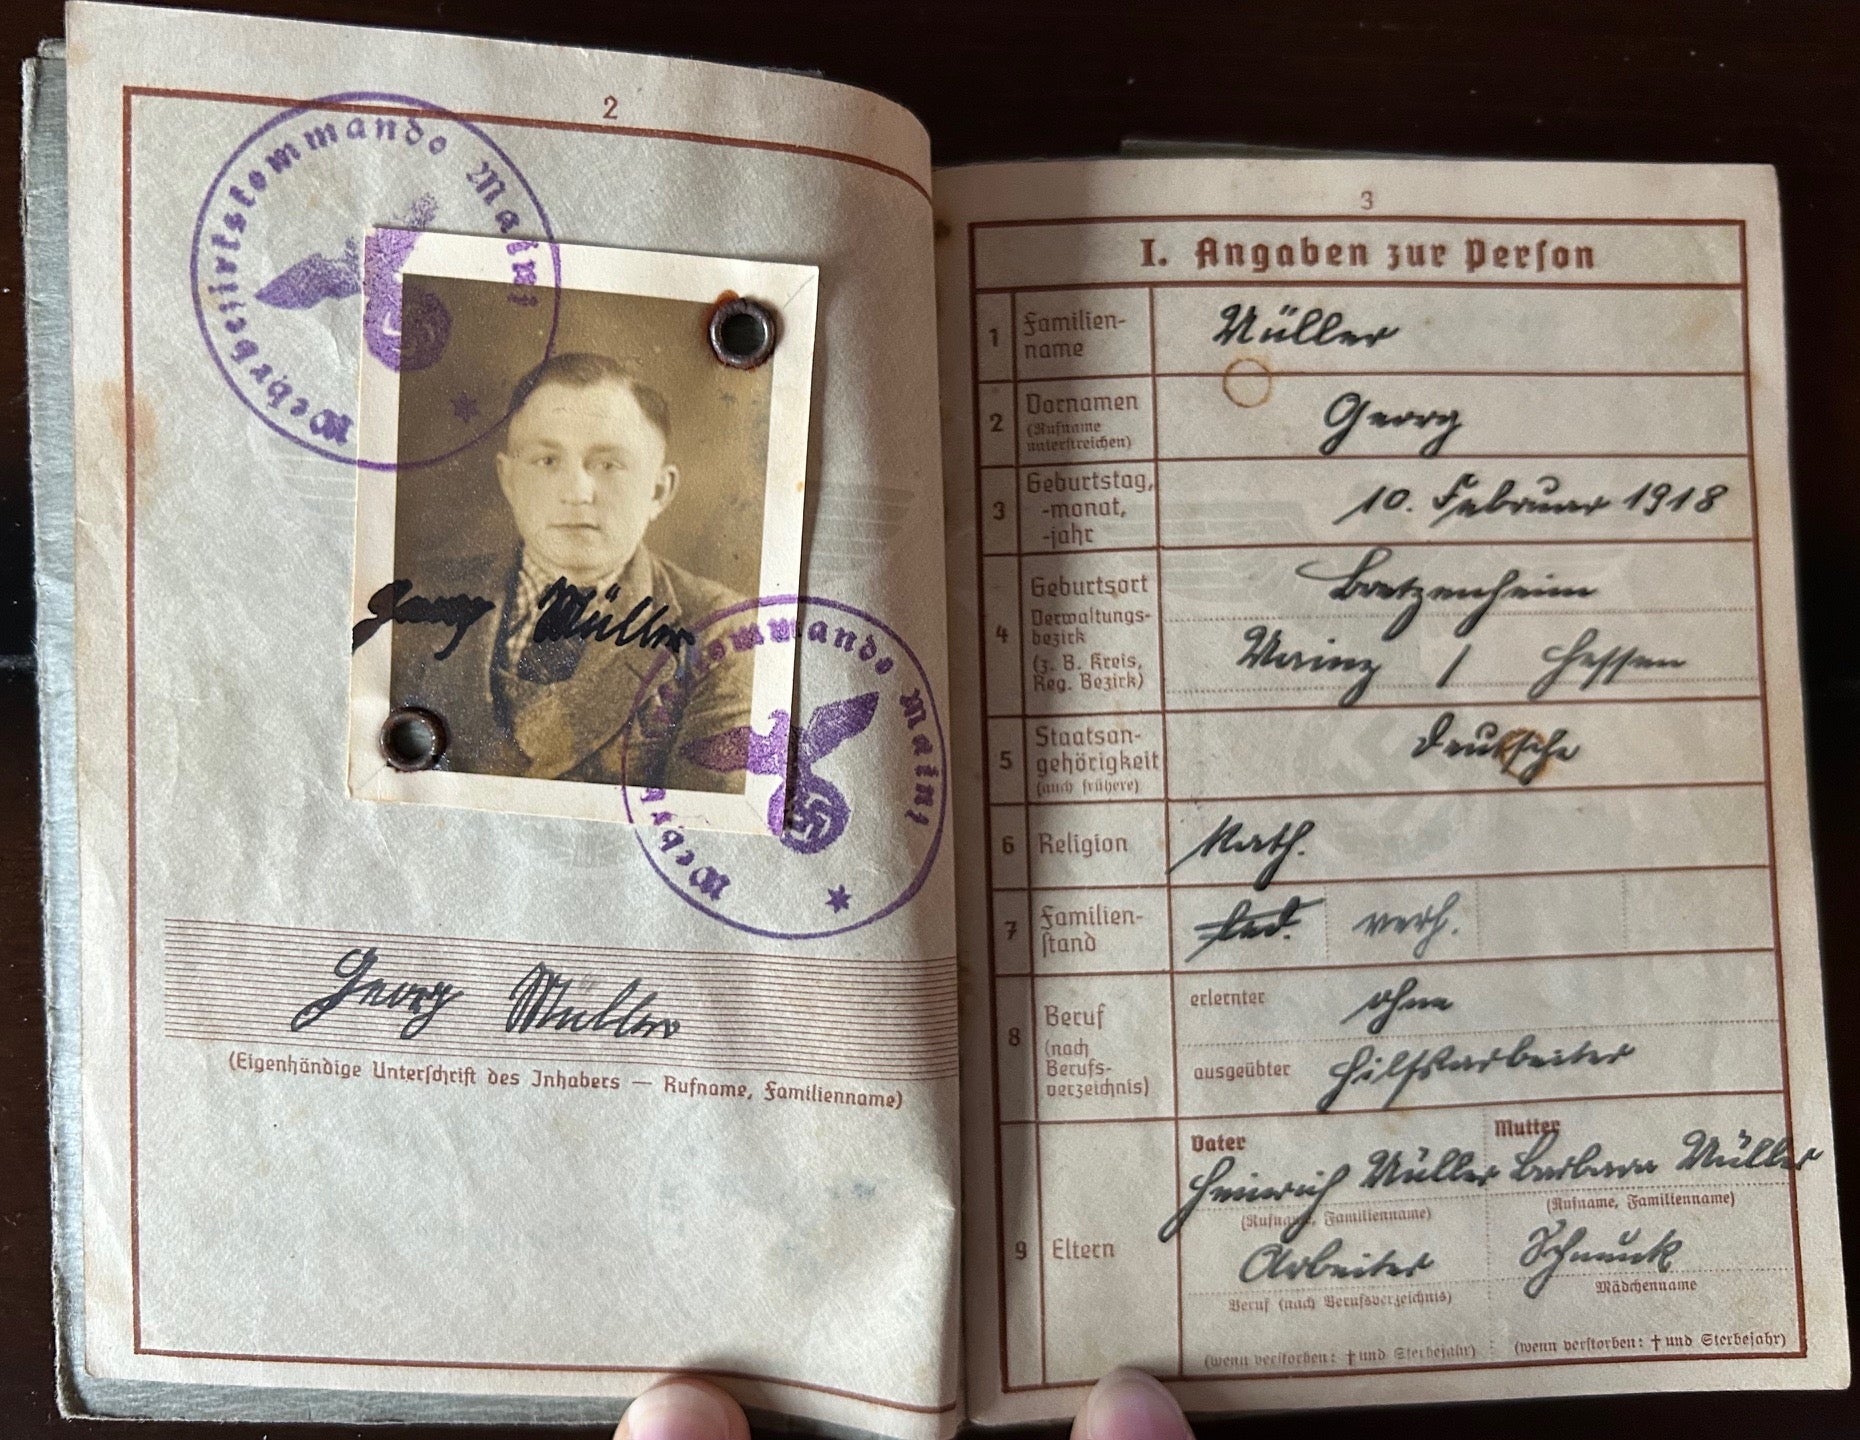 2
Wehrbezirkskommando Mainz
Georg Müller
Wehrbezirkskommando Mainz
Georg Müller
(Eigenhändige Unterschrift des Inhabers — Rufname, Familienname)
3
I. Angaben zur Person
1 Familien-
name
Müller
2 Vornamen
(Rufname
unterstreichen)
Georg
3 Geburtstag,
-monat,
-jahr
10. Februar 1918
4 Geburtsort
Verwaltungs-
bezirk
(z. B. Kreis,
Reg. Bezirk)
Bretzenheim
Mainz / Hessen
5 Staatsan-
gehörigkeit
(auch frühere)
Deutsche
6 Religion
Kath.
7 Familien-
stand
led. verh.
8 Beruf
(nach
Berufs-
verzeichnis)
erlernter ohne
ausgeübter Hilfsarbeiter
9 Eltern
Vater
Heinrich Müller
(Rufname, Familienname)
Arbeiter
Beruf (nach Berufsverzeichnis)
(wenn verstorben: † und Sterbejahr)
Mutter
Barbara Müller
(Rufname, Familienname)
Mädchenname
(wenn verstorben: † und Sterbejahr)